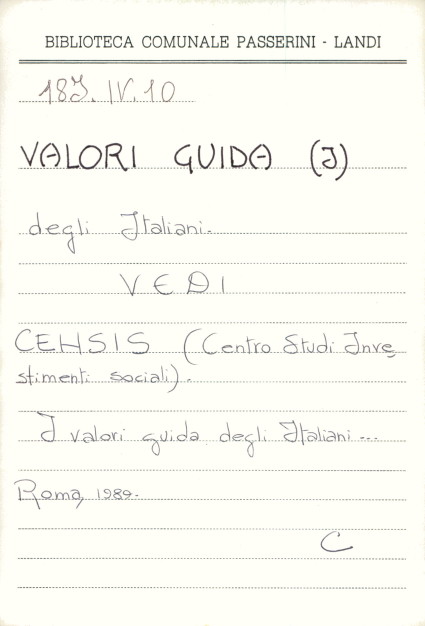 BIBLIOTECA COMUNALE PASSERINI - LANDI
18J. IV. 10
VALORI GUIDA (I)
degli Italiani.
VEDI
CENSIS (Centro Studi Inve
stimenti sociali).
I valori guida degli Italiani...
Roma, 1989.
C